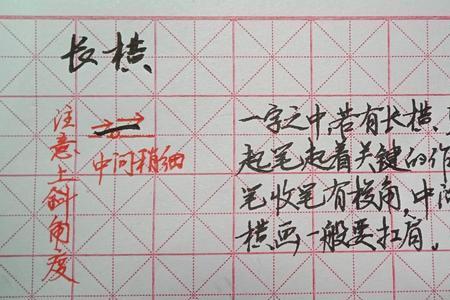 长横
注意上斜角度
中间稍细
一字之中,若有长横,
起笔,起着关键的作
笔收笔有棱角,中间
横画,一般要扛肩。